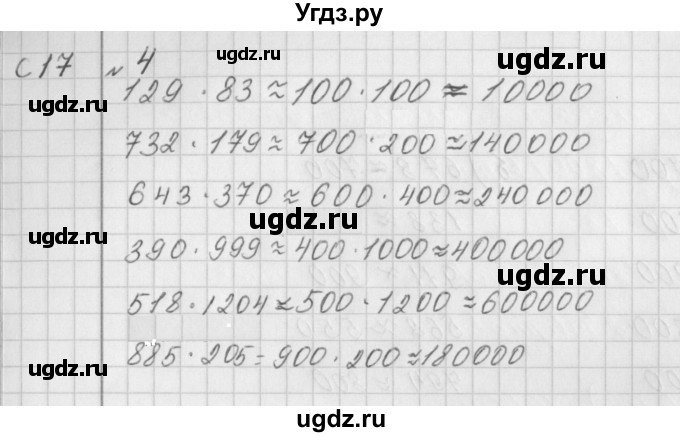 Угдз.ру
ugdz.ru
ugdz.ru
с 17 № 4
129 · 83 ≈ 100 · 100 ≈ 10000
ugdz.ru
732 · 179 ≈ 700 · 200 ≈ 140000
ugdz.ru
643 · 370 ≈ 600 · 400 ≈ 240 000
ugdz.ru
ugdz.ru
390 · 999 ≈ 400 · 1000 ≈ 400000
ugdz.ru
518 · 1204 ≈ 500 · 1200 ≈ 600000
ugdz.ru
885 · 205 = 900 · 200 ≈ 180000
ugdz.ru
ugdz.ru